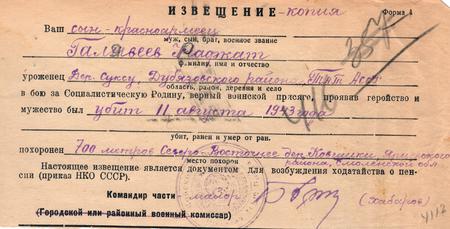 ИЗВЕЩЕНИЕ - копия
Форма 4
Ваш сын красноармеец
муж, сын, брат, военное звание
Галявеев
фамилия, имя и отчество
уроженец Дер. Суксу, Дубязовского района, Тат. АССР
область, район, деревня и село
в бою за Социалистическую Родину, верный воинской присяге, проявив геройство и
мужество был убит 11 августа 1943 года
убит, ранен и умер от ран.
похоронен 700 метров Северо-Восточнее дер.
района, Смоленской обл.
место похорон
Настоящее извещение является документом для возбуждения ходатайства о пен-
сии (приказ НКО СССР).
Командир части - майор (Хабаров)
(Городской или районный военный комиссар)
4117